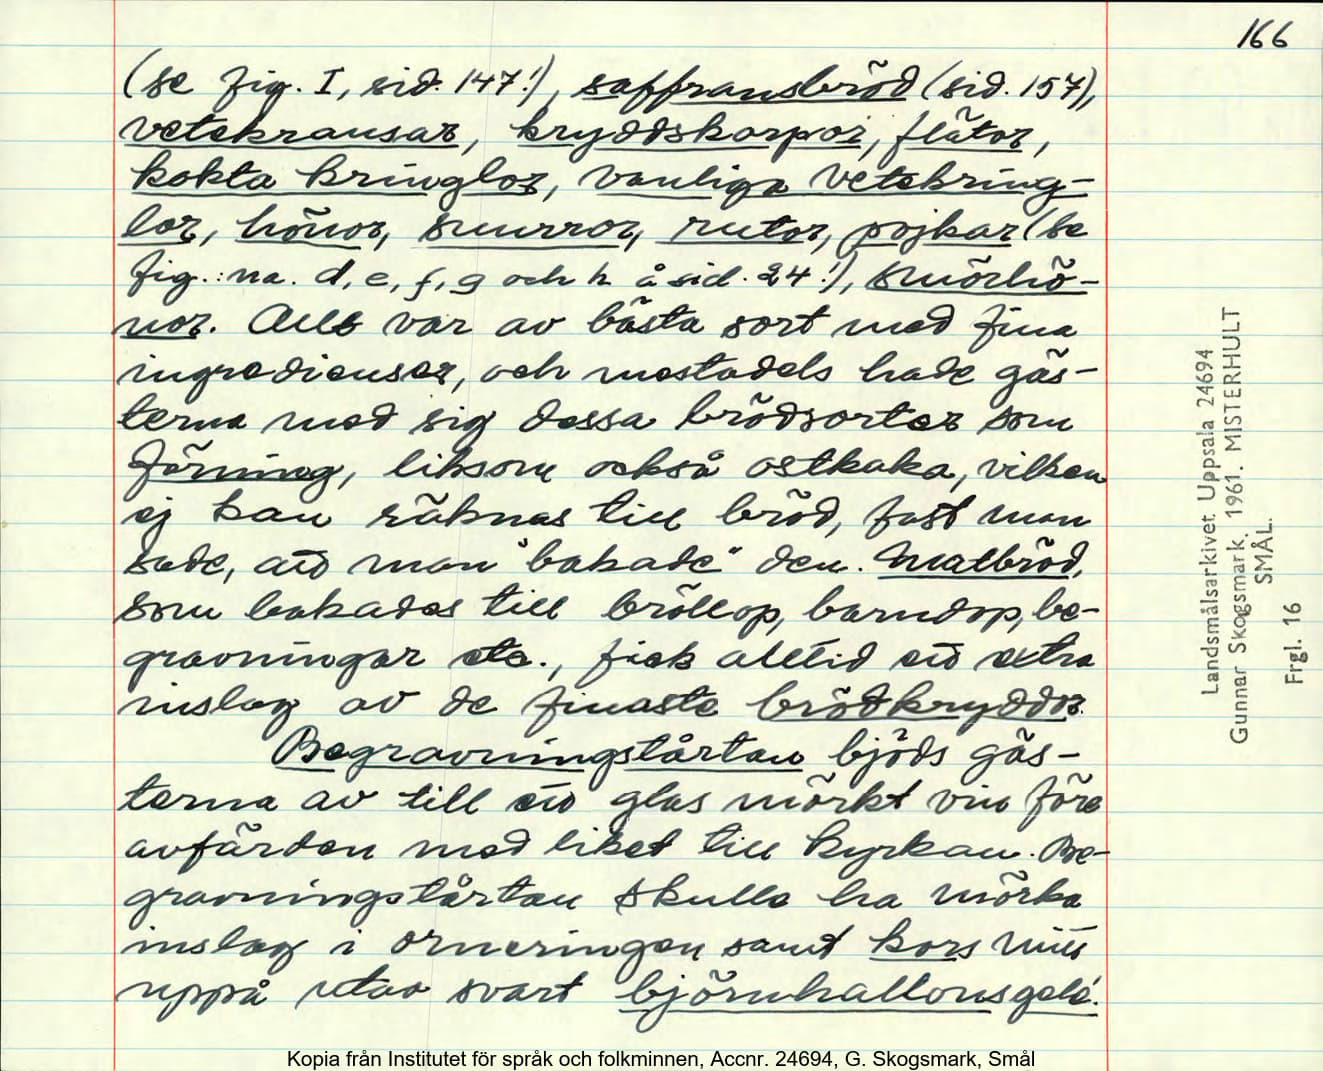 166
(se fig. I, sid. 147!), saffransbröd (sid. 157),
vetekransar, kryddskorpor, flätor,
kokta kringlor, vanliga vetekring-
lor, hönor, snurror, rutor, pojkar (se
fig.:na. d, e, f, g och h å sid. 24!), smörhö-
nor. Allt var av bästa sort med fina
ingredienser, och mestadels hade gäs-
terna med sig dessa brödsorter som
förning, liksom också ostkaka, vilken
ej kan räknas till bröd, fast man
sade, att man "bakade" den. Matbröd,
som bakades till bröllop, barndop, be-
gravningar etc., fick alltid ett extra
inslag av de finaste brödkryddor.
Begravningstårtan bjöds gäs-
terna av till ett glas mörkt vin före
avfärden med liket till kyrkan. Be-
gravningstårtan skulle ha mörka
inslag i orneringen samt kors mitt
uppå utav svart björnhallonsgelé.
Landsmålsarkivet Uppsala 24694
Gunnar Skogsmark. 1961. MISTERHULT
SMÅL.
Frgl. 16
Kopia från Institutet för språk och folkminnen, Accnr. 24694, G. Skogsmark, Smål